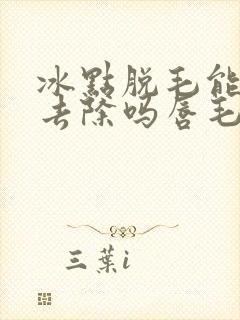 冰點脱毛能
去除吗唇毛
三葉i